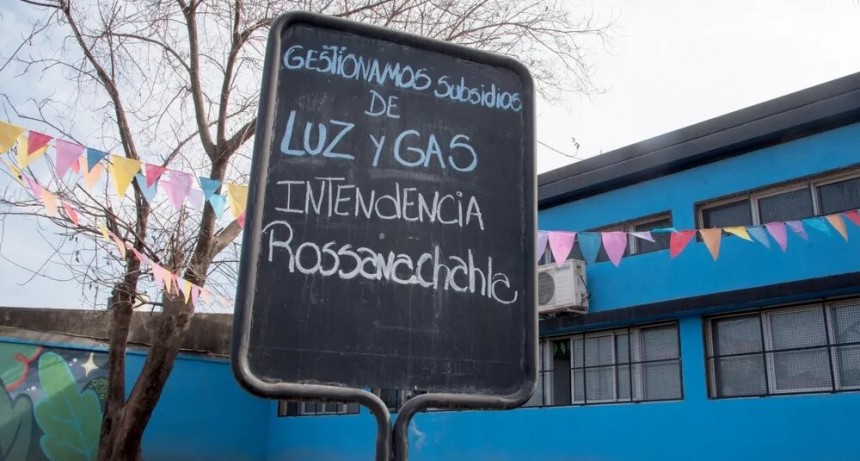 GESTIONAMOS SubsidioS
DE
LUZ y GAS
INTENDENCIA
Rossanachahla